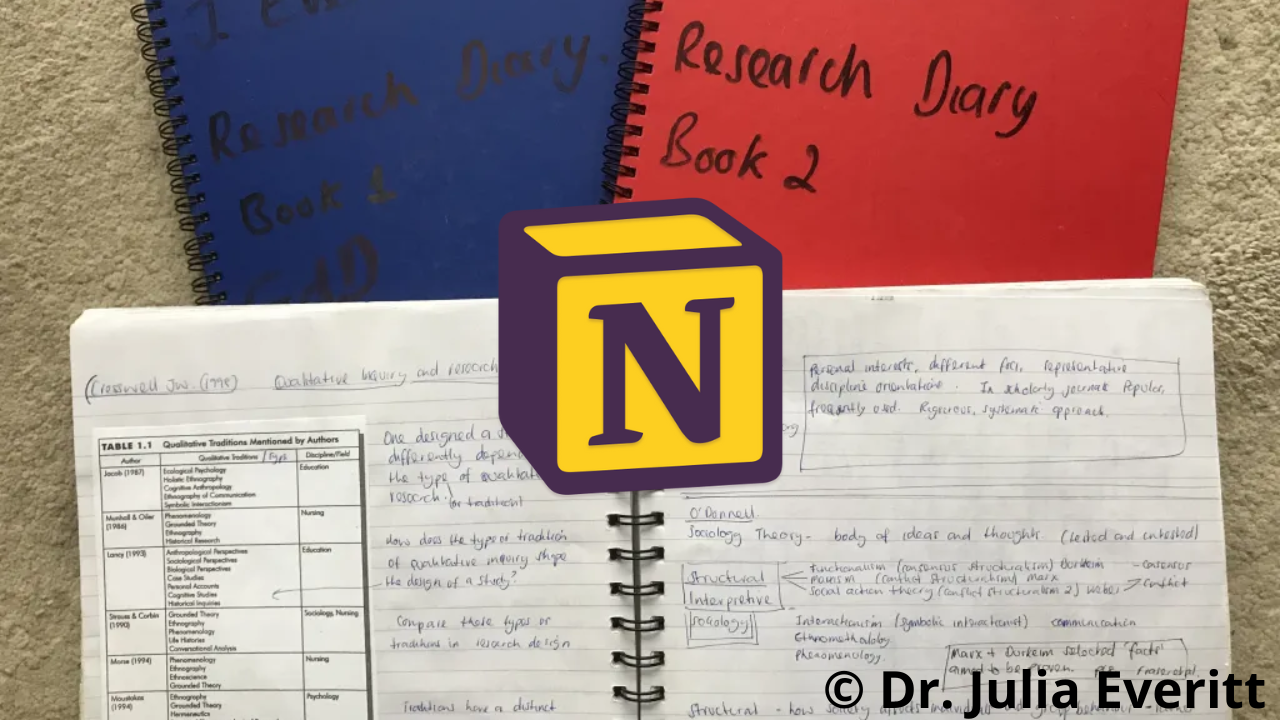 J. Ev
Research Diary.
Book 1
EdD
Research Diary
Book 2
N
(Cresswell J.W. (1998) Qualitative Inquiry and research
TABLE 1.1 Qualitative Traditions Mentioned by Authors
Author Qualitative Traditions / Type Discipline/Field
Jacob (1987) Ecological Psychology Education
Holistic Ethnography
Cognitive Anthropology
Ethnography of Communication
Symbolic Interactionism
Munhall & Oiler (1986) Phenomenology Nursing
Grounded Theory
Ethnography
Historical Research
Lancy (1993) Anthropological Perspectives Education
Sociological Perspectives
Biological Perspectives
Case Studies
Personal Accounts
Cognitive Studies
Historical Inquiries
Strauss & Corbin (1990) Grounded Theory Sociology, Nursing
Ethnography
Phenomenology
Life Histories
Conversational Analysis
Morse (1994) Phenomenology Nursing
Ethnography
Ethnoscience
Grounded Theory
Moustakas (1994) Ethnography Psychology
Grounded Theory
Hermeneutics
One designed a
differently depen
the type of qualitat
research.
(or tradition)
How does the type or tradition
of qualitative inquiry shape
the design of a study?
Compare these types or
traditions in research design
Traditions have a distinct
Personal interests, different foci, representative
discipline orientations. In scholarly journals Popular,
frequently used. Rigorous, systematic approach.
O'Donnell
Sociology Theory - body of ideas and thoughts. (tested and untested)
Structural
Interpretive
Sociology
Functionalism (consensus structuralism) Durkheim - consensus
Marxism (conflict structuralism) Marx
Social action theory (conflict structuralism 2) Weber conflict
Interactionism (symbolic interactionist) communication
Ethnomethodology
Phenomenology
Marx + Durkeim selected 'facts'
aimed to be proven.
Structural - how society affects
© Dr. Julia Everitt